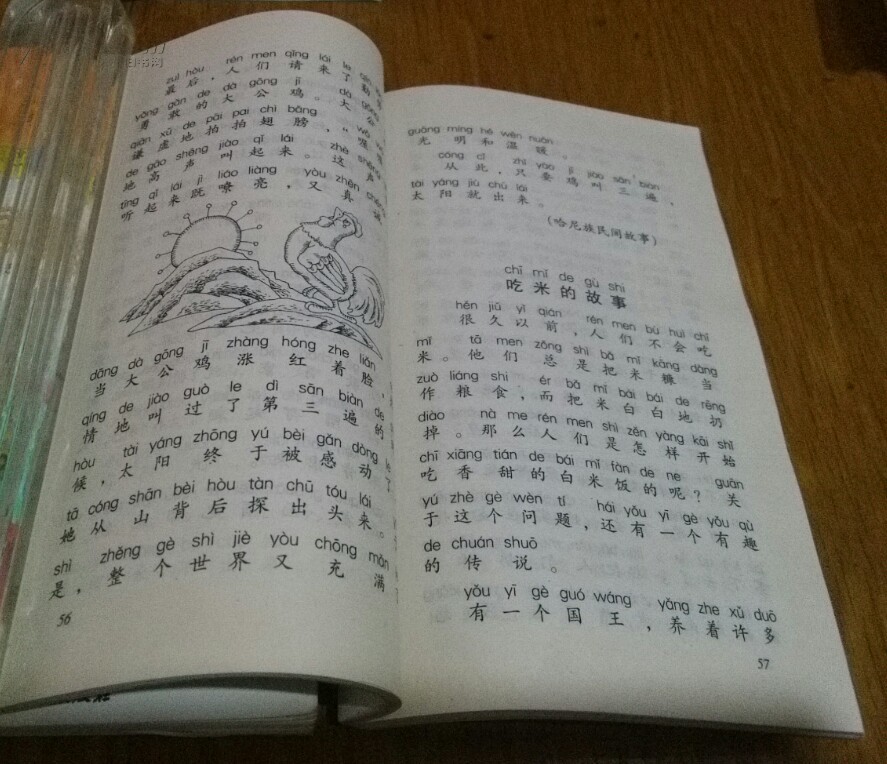 zuì hòu rén men qǐng lái le
最后，人们请来了勤
yǒng gǎn de dà gōng jī dà gōng
勇敢的大公鸡。大公
qiān xū de pāi pai chì bǎng wō
谦虚地拍拍翅膀，“喔
de gāo shēng jiào qǐ lái zhè shēng
地高声叫起来。这声
tīng qǐ lái jì liáo liàng yòu zhēn chéng
听起来既嘹亮，又真诚
dāng dà gōng jī zhàng hóng zhe liǎn
当大公鸡涨红着脸，
qíng de jiào guò le dì sān biàn de
情地叫过了第三遍的
hòu tài yáng zhōng yú bèi gǎn dòng le
候，太阳终于被感动了
tā cóng shān bèi hòu tàn chū tóu lái
她从山背后探出头来。
shì zhěng gè shì jiè yòu chōng mǎn
是，整个世界又充满
56
guāng míng hé wēn nuǎn
光明和温暖。
cóng cǐ zhǐ yào jī jiào sān biàn
从此，只要鸡叫三遍，
tài yáng jiù chū lái
太阳就出来。
（哈尼族民间故事）
chī mǐ de gù shi
吃米的故事
hěn jiǔ yǐ qián rén men bú huì chī
很久以前，人们不会吃
mǐ tā men zǒng shì bǎ mǐ kāng dàng
米。他们总是把米糠当
zuò liáng shi ér bǎ mǐ bái bái de rēng
作粮食，而把米白白地扔
diào nà me rén men shì zěn yàng kāi shǐ
掉。那么人们是怎样开始
chī xiāng tián de bái mǐ fàn de ne guān
吃香甜的白米饭的呢？关
yú zhè gè wèn tí hái yǒu yī gè yǒu qù
于这个问题，还有一个有趣
de chuán shuō
的传说。
yǒu yī gè guó wáng yǎng zhe xǔ duō
有一个国王，养着许多
57